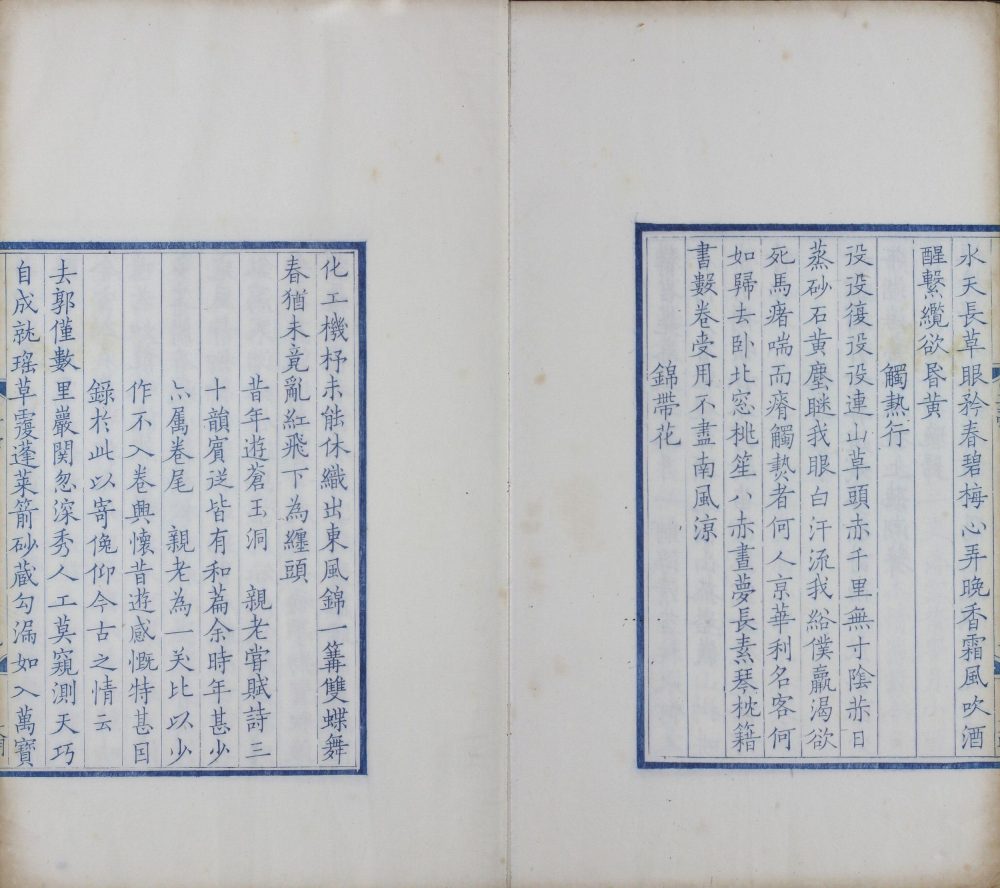 水天長草眼矜春碧梅心弄晚香霜風吹酒
醒繫纜欲昬黄
觸熱行
役役復役役連山草頭赤千里無寸陰赤日
蒸砂石黄塵眯我眼白汗流我綌僕羸渴欲
死馬瘏喘而瘠觸𤍠者何人京華利名客何
如歸去卧北窓桃笙八赤晝夢長素琴枕籍
書數卷受用不盡南風涼
錦帶花
化工機杼未能休織出東風錦一篝雙蝶舞
春猶未竟亂紅飛下為纒頭
昔年遊蒼玉洞　親老嘗賦詩三
十韻賓送皆有和篇余時年甚少
亦属卷尾　親老為一笑比以少
作不入卷興懷昔遊感慨特甚因
錄於此以寄俛仰今古之情云
去郭僅數里巖関忽深秀人工莫窺測天巧
自成就瑤草覆蓬萊箭砂蔵勾漏如入萬寶